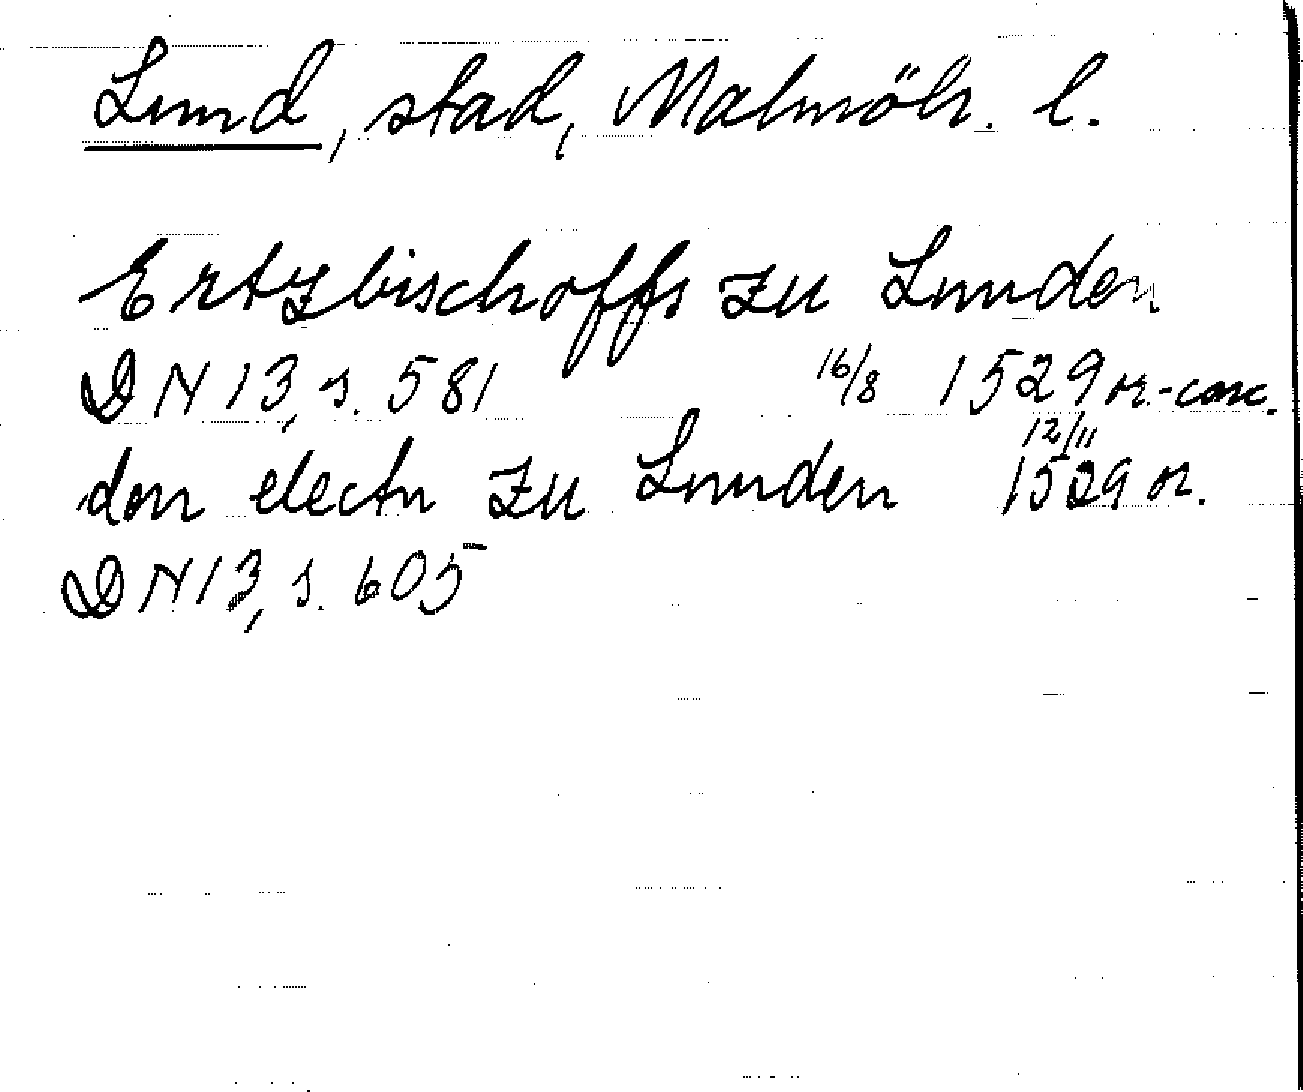 Lund, stad, Malmöh. l.
Ertzbischoffs zu Lunden
DN 13, s. 581 16/8 1529 or.-conc.
den electn zu Lunden 12/11 1529 or.
DN 13, s. 605